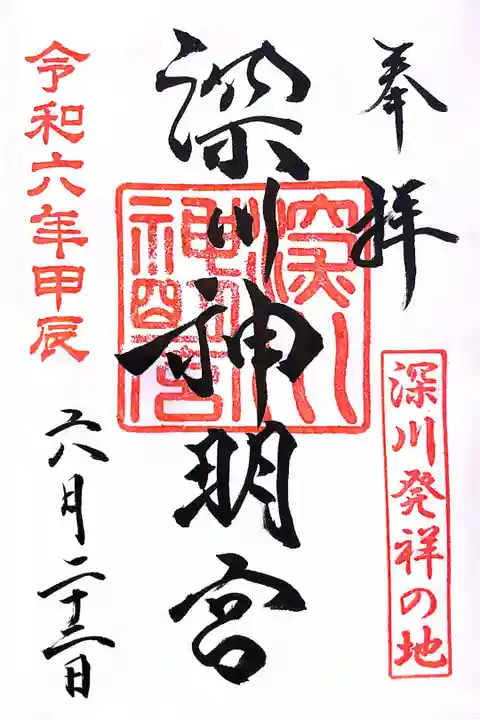 奉拝
深川発祥の地
深川神明宮
深川神明宮
令和六年甲辰
六月二十二日